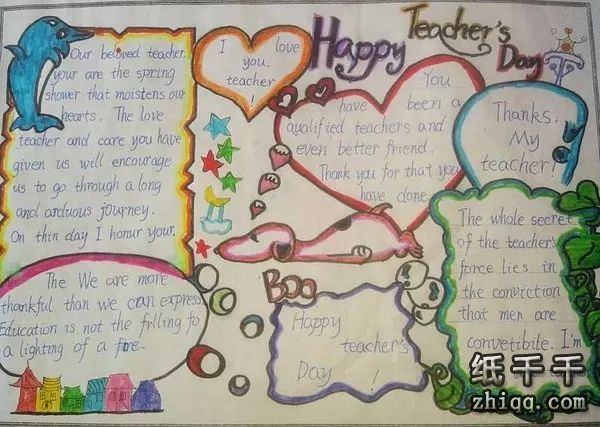 Our beloved teacher.
your are the spring
shower that moistens our
hearts. The love
teacher and care you have
given us will encourage
us to go through a long
and arduous journey.
On thin day I honur your.
I love
you.
teacher
!
Happy Teacher's Day
You
have been a
qualified teachers and
even better friend.
Thank you for that you
have done
Thanks.
My
teacher!
The We are more
thankful than we can express
Education is not the frlling fo
a lighting of a fire.
Boo
Happy
teacher's
Day !
The whole secret
of the teacher's
force lies in
the conviction
that mer are
convetibite. I'm
纸千千
zhiqq.com